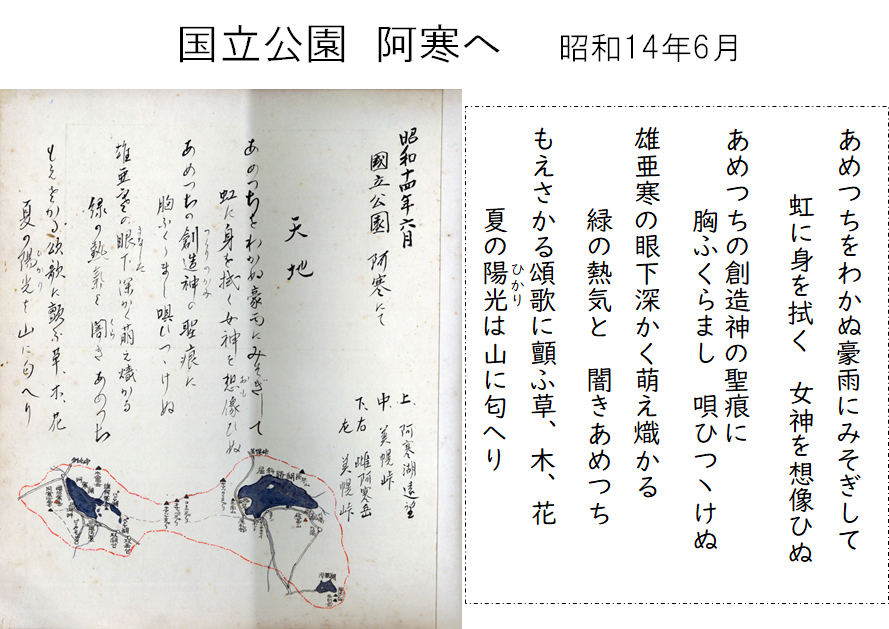 国立公園 阿寒へ 昭和14年6月
昭和十四年六月
國立公園 阿寒にて
天地
あめつちをわかぬ豪雨にみそぎして
虹に身を拭く女神を想像ひぬ
あめつちの創造神の聖痕に
胸ふくらまし唄ひつヽけぬ
雄亜寒の眼下深かく萌え熾かる
緑の熱氣と闇きあめつち
もえさかる頌歌に顫ふ草、木、花
夏の陽光は山に匂へり
上、阿寒湖遠望
中、美幌峠
下、右 雌阿寒岳
左 美幌峠
あめつちをわかぬ豪雨にみそぎして
虹に身を拭く 女神を想像ひぬ
あめつちの創造神の聖痕に
胸ふくらまし 唄ひつヽけぬ
雄亜寒の眼下深かく萌え熾かる
緑の熱気と 闇きあめつち
もえさかる頌歌に顫ふ草、木、花
夏の陽光は山に匂へり
ひかり